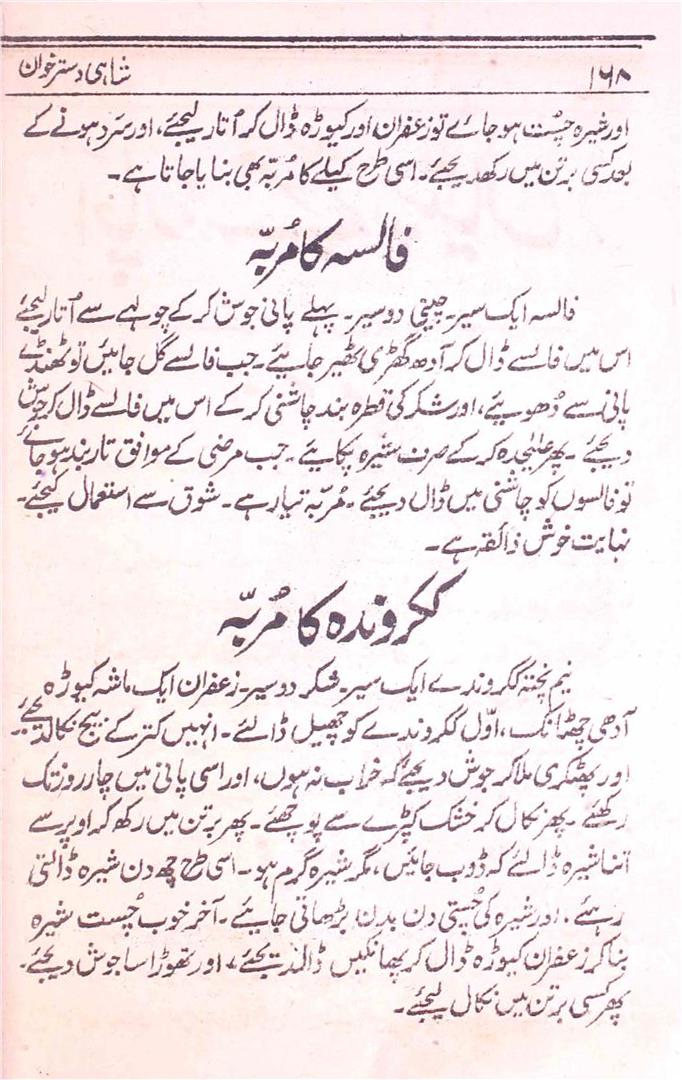 ۱۶۸
شاہی دستر خوان
اور شیرہ چُست ہو جائے تو زعفران اور کیوڑہ ڈال کر اُتار لیجئے، اور سَرد ہونے کے
بعد کسی برتن میں رکھدیجئے۔ اسی طرح کیلے کا مُربّہ بھی بنایا جاتا ہے۔
فالسہ کا مُربّہ
فالسہ ایک سیر۔ چینی دو سیر۔ پہلے پانی جوش کر کے چولہے سے اُتار لیجئے
اس میں فالسے ڈال کر آدھ گھڑی ٹھیر جایئے۔ جب فالسے گل جائیں تو ٹھنڈے
پانی سے دُھویئے، اور شکر کی قطرہ بند چاشنی کر کے اس میں فالسے ڈال کر جوش
دیجئے۔ پھر علیٰحدہ کر کے صرف شیرہ پکایئے۔ جب مرضی کے موافق تار بند ہو جائے
تو فالسوں کو چاشنی میں ڈال دیجئے۔ مُربّہ تیار ہے۔ شوق سے استعمال کیجئے۔
نہایت خوش ذائقہ ہے۔
ککروندہ کا مُربّہ
نیم پختہ ککروندے ایک سیر۔ شکر دو سیر۔ زعفران ایک ماشہ کیوڑہ
آدھی چھٹانک، اوّل ککروندے کو چھیل ڈالئے۔ انہیں کتر کے بیج نکالدیجئے۔
اور پھٹکری ملا کر جوش دیجئے کہ خراب نہ ہوں، اور اسی پانی میں چار روز تک
رکھئے۔ پھر نکال کر خشک کپڑے سے پوچھئے۔ پھر برتن میں رکھ کر اوپر سے
اتنا شیرہ ڈالئے کہ ڈوب جائیں، مگر شیرہ گرم ہو۔ اسی طرح چھ دن شیرہ ڈالتی
رہئے۔ اور شیرہ کی چُستی دن بدن بڑھاتی جایئے۔ آخر خوب چُست شیرہ
بنا کر زعفران کیوڑہ ڈال کر پھانکیں ڈالدیجئے، اور تھوڑا سا جوش دیجئے۔
پھر کسی برتن میں نکال لیجئے۔